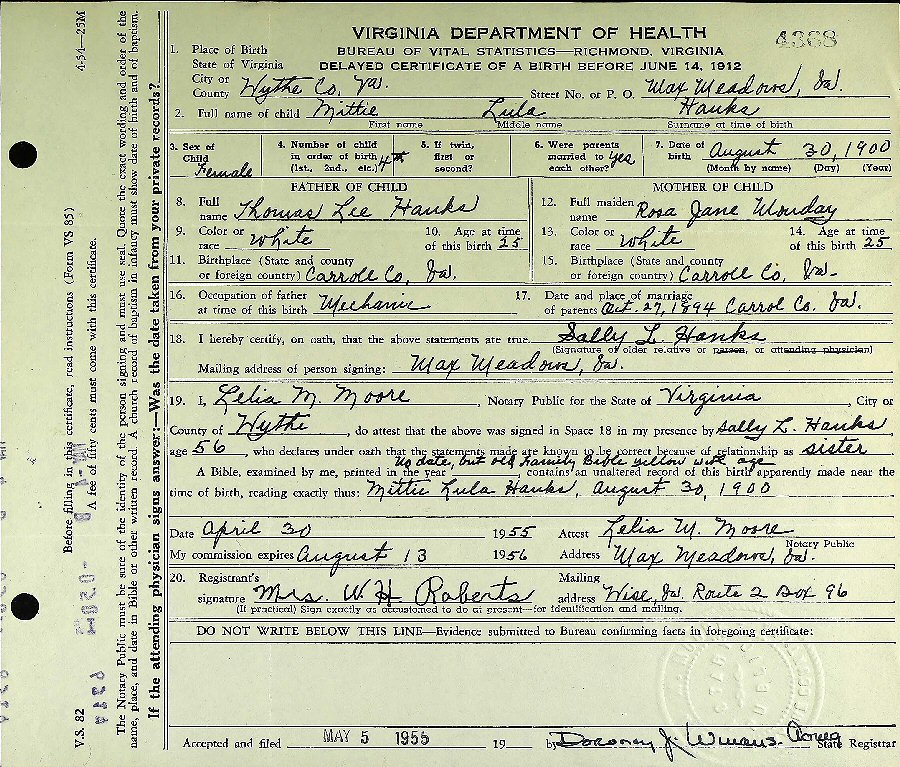 VIRGINIA DEPARTMENT OF HEALTH
BUREAU OF VITAL STATISTICS—RICHMOND, VIRGINIA
DELAYED CERTIFICATE OF A BIRTH BEFORE JUNE 14, 1912
4368
1. Place of Birth
State of Virginia
City or
County Wythe Co, Va. Street No. or P. O. Max Meadows, Va.
2. Full name of child Mittie Lula Hanks
First name Middle name Surname at time of birth
3. Sex of Child Female
4. Number of child in order of birth (1st., 2nd., etc.) 4th
5. If twin, first or second?
6. Were parents married to each other? Yes
7. Date of birth August 30, 1900
(Month by name) (Day) (Year)
FATHER OF CHILD
8. Full name Thomas Lee Hanks
9. Color or race White 10. Age at time of this birth 25
11. Birthplace (State and county or foreign country) Carroll Co, Va.
MOTHER OF CHILD
12. Full maiden name Rosa Jane Monday
13. Color or race White 14. Age at time of this birth 25
15. Birthplace (State and county or foreign country) Carroll Co, Va.
16. Occupation of father at time of this birth Mechanic
17. Date and place of marriage of parents Oct. 27, 1894 Carrol Co. Va.
18. I hereby certify, on oath, that the above statements are true. Sally L. Hanks
(Signature of older relative or person, or attending physician)
Mailing address of person signing: Max Meadows, Va.
19. I, Lelia M. Moore, Notary Public for the State of Virginia, City or
County of Wythe, do attest that the above was signed in Space 18 in my presence by Sally L. Hanks,
age 56, who declares under oath that the statements made are known to be correct because of relationship as sister
No date, but old Family Bible yellow with age
A Bible, examined by me, printed in the year, contains an unaltered record of this birth apparently made near the
time of birth, reading exactly thus: Mittie Lula Hanks, August 30, 1900
Date April 30 1955 Attest Lelia M. Moore
Notary Public
My commission expires August 13 1956 Address Max Meadows, Va.
20. Registrant's signature Mrs. W. H Roberts Mailing address Wise, Va. Route 2 Box 96
(If practical) Sign exactly as accustomed to do at present—for identification and mailing.
DO NOT WRITE BELOW THIS LINE—Evidence submitted to Bureau confirming facts in foregoing certificate:
Accepted and filed MAY 5 1955 19 by State Registrar
4-54—25M
V.S. 82
Before filling in this certificate, read instructions (Form VS 85)
A fee of fifty cents must come with this certificate.
The Notary Public must be sure of the identity of the person signing and must use seal. Quote the exact wording and order of the
name, place, and date in Bible or other written record. A church record of baptism in infancy must show date of birth and of baptism.
If the attending physician signs answer:—Was the date taken from your private records?